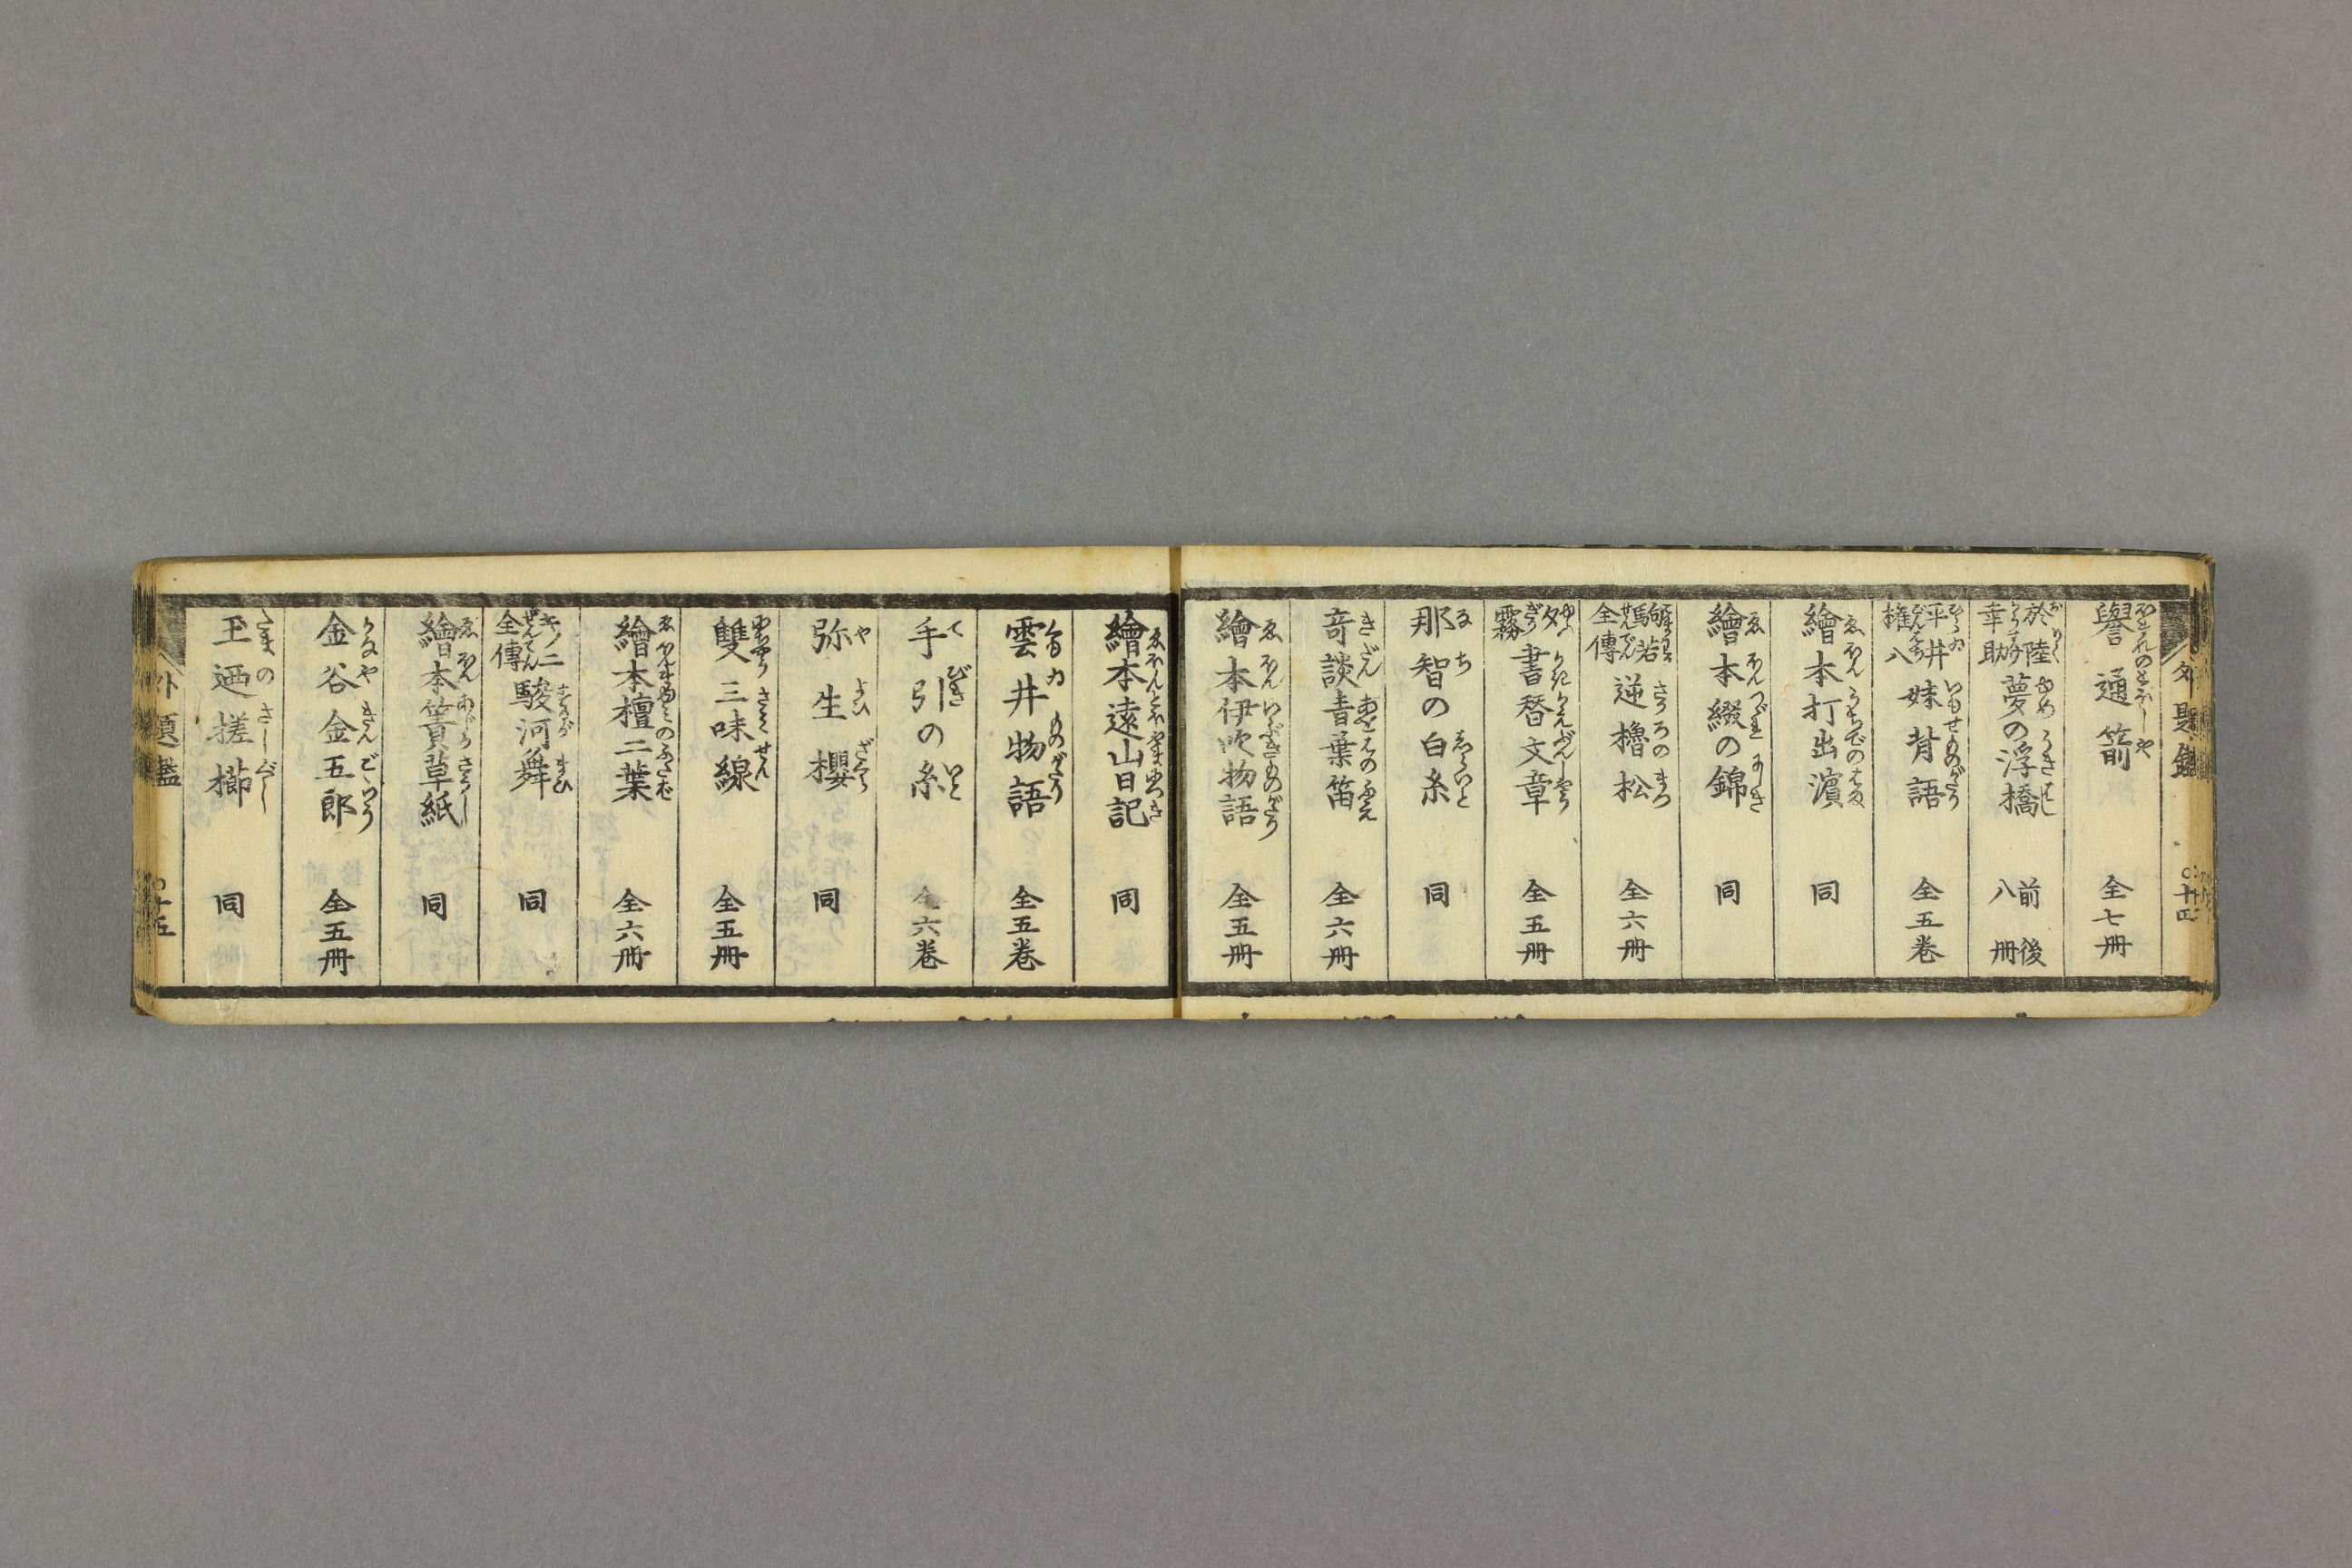 外題鑑 〇十四
譽通箭 全七册
於陸幸助夢の浮橋 前後八册
平井權八妹背語 全五巻
繪本打出濵 同
繪本綴の錦 同
駒若全傳逆櫓松 全六册
夕霧書替文章 全五册
那智の白糸 同
竒談青葉笛 全六册
繪本伊吹物語 全五册
繪本遠山日記 同
雲井物語 全五巻
手引の糸 全六巻
弥生櫻 同
雙三味線 全五册
繪本檀二葉 全六册
全傳駿河舞 同
繪本簀草紙 同
金谷金五郎 全五册
玉廼搓櫛 同
外題鑑 〇十五